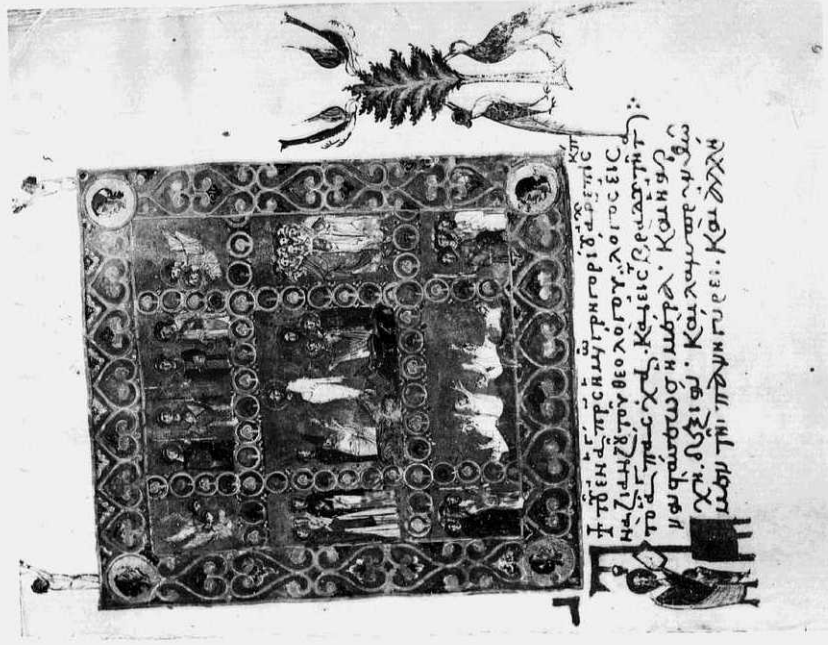 τοῦ ἐν ἁ π̅ρ̅ς ἡμ γρηγορίου
ναζιανζοῦ τοῦ θεολόγου λόγος εἰς
τὸ ἅ πάσχα καὶ εἰς βραδυτῆτ
ναστάσεως ἡμέρα· καὶ ἡ ἀρ
χὴ δεξιά· καὶ λαμπρυνθῶ
μεν τῆι πανηγύρει· καὶ ἀλλή